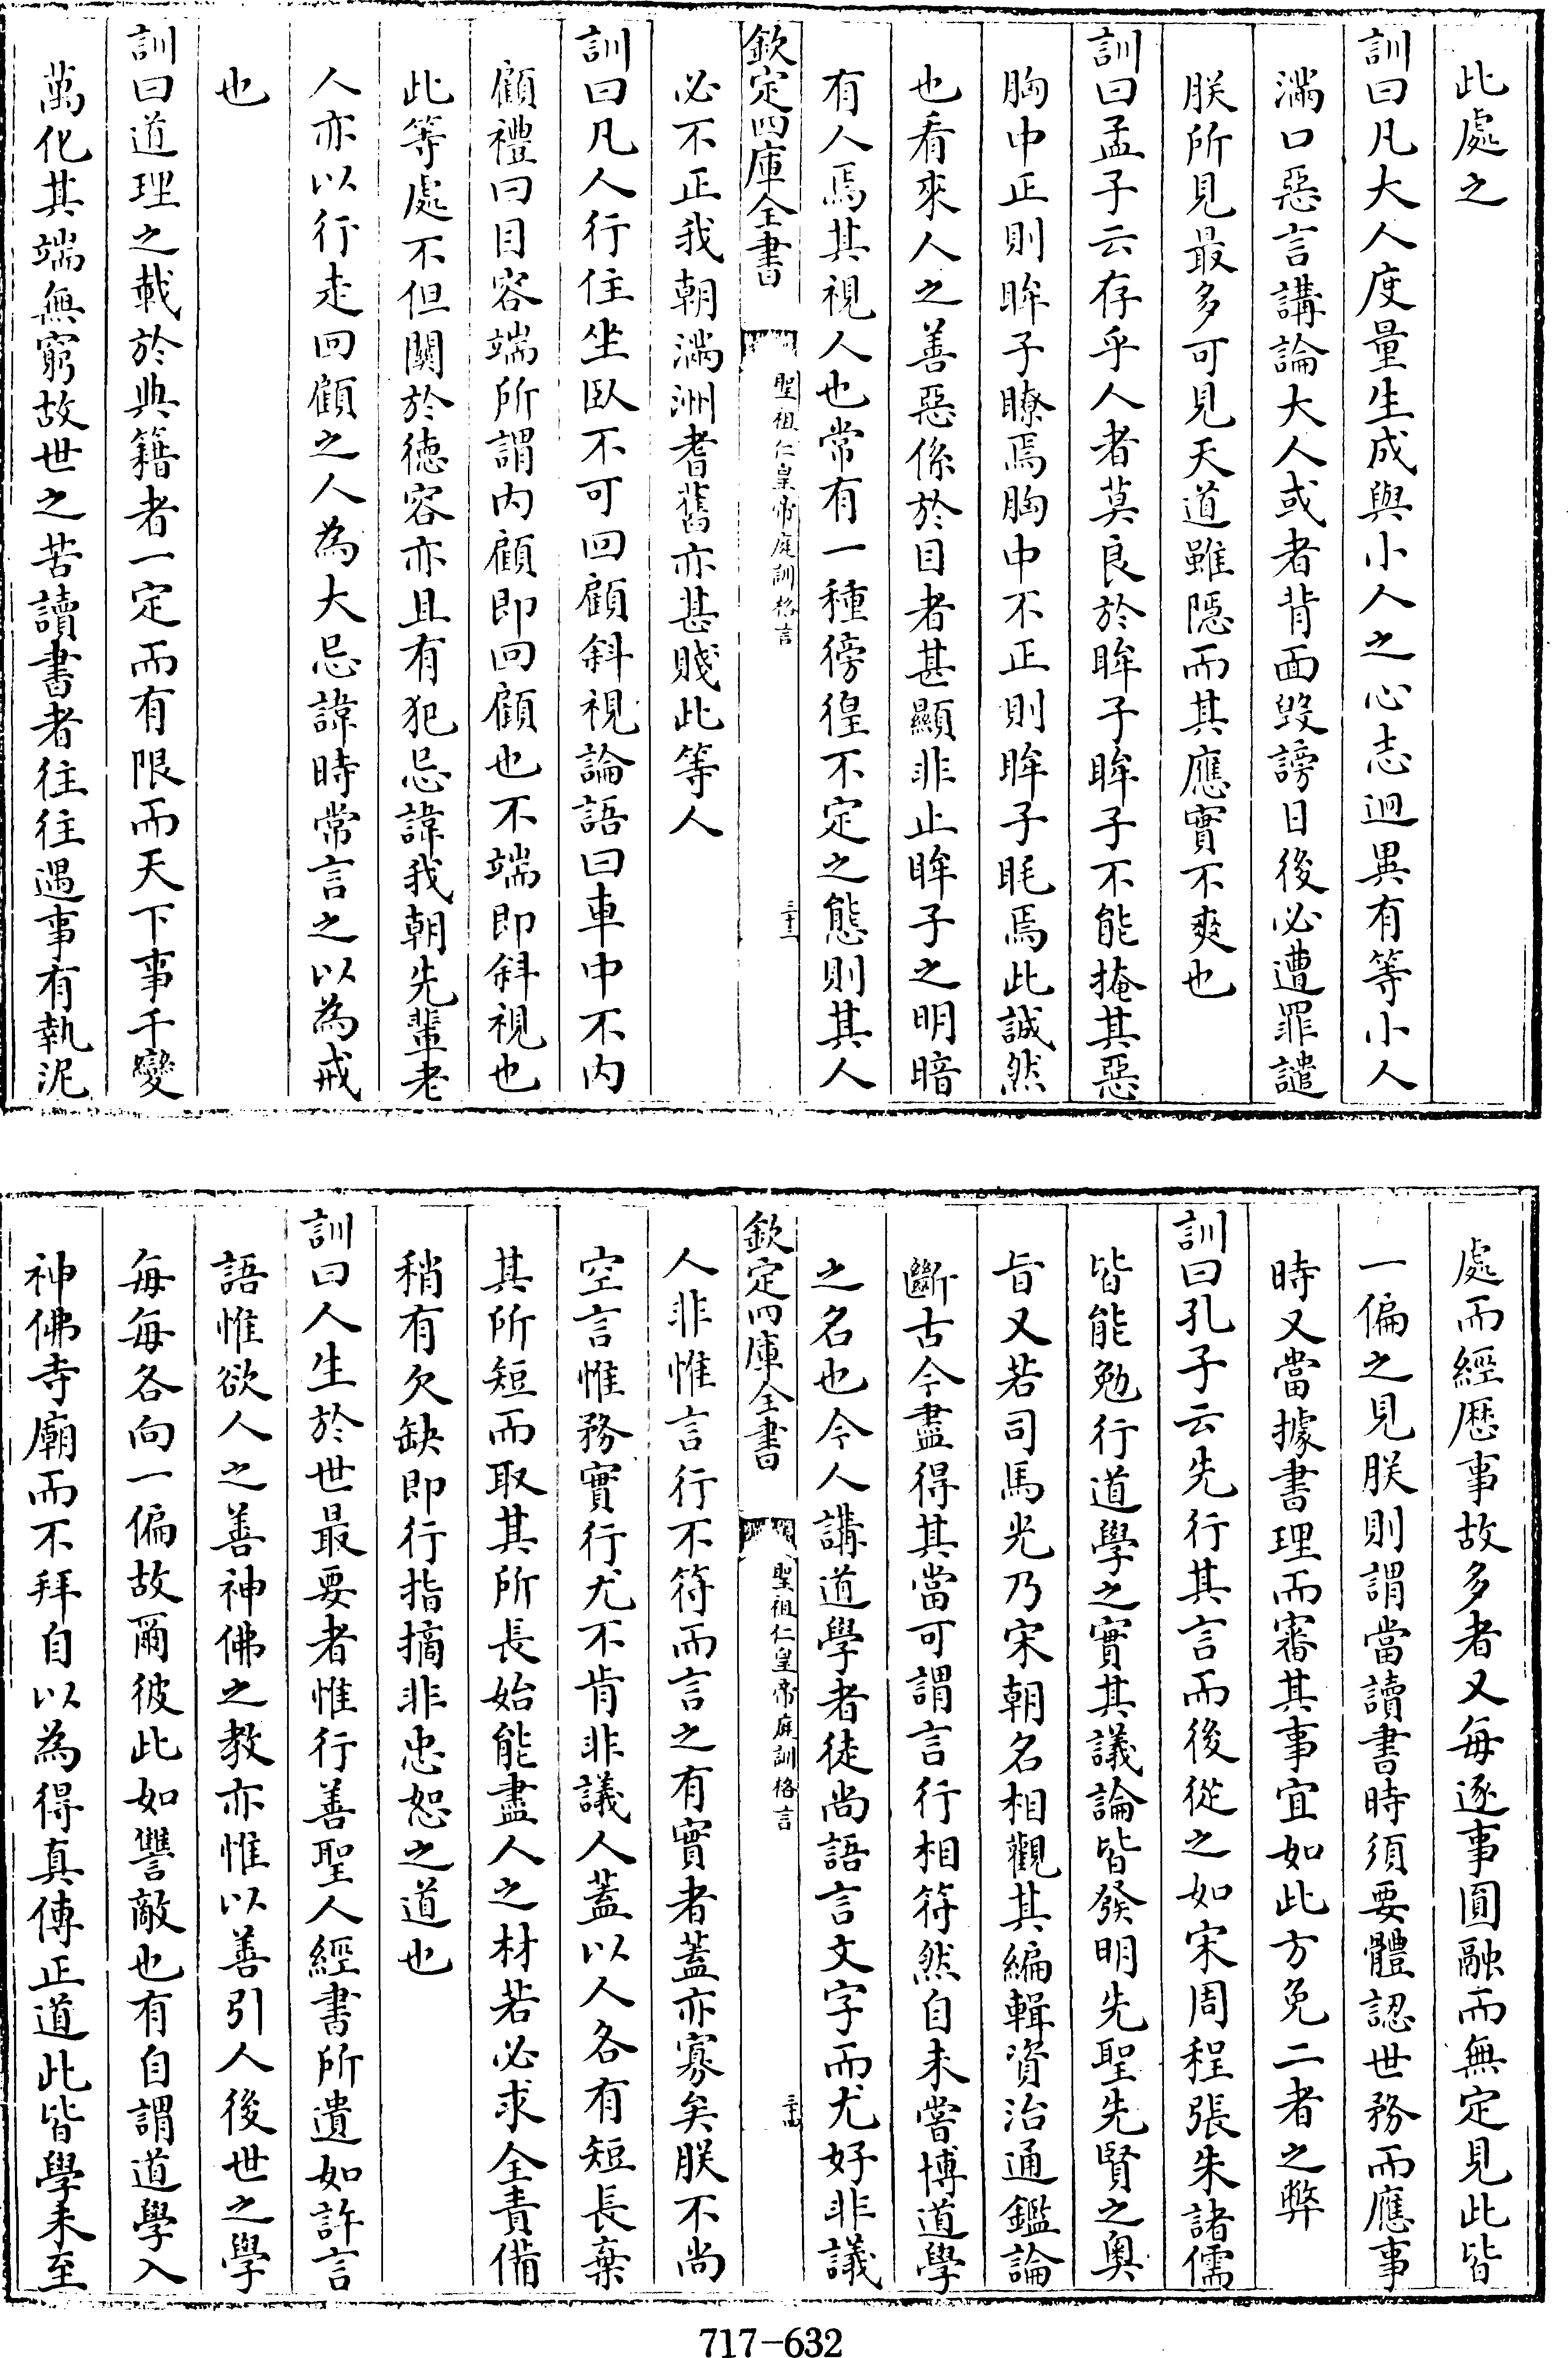 此處之
訓曰凡大人度量生成與小人之心志迥異有等小人
滿口惡言講論大人或者背面毀謗日後必遭罪譴
朕所見最多可見天道雖隱而其應實不爽也
訓曰孟子云存乎人者莫良於眸子眸子不能掩其惡
胸中正則眸子瞭焉胸中不正則眸子眊焉此誠然
也看來人之善惡係於目者甚顯非止眸子之明暗
有人焉其視人也常有一種徬徨不定之態則其人
欽定四庫全書 聖祖仁皇帝庭訓格言 三十三
必不正我朝滿洲耆舊亦甚賤此等人
訓曰凡人行住坐臥不可回顧斜視論語曰車中不內
顧禮曰目容端所謂內顧即回顧也不端即斜視也
此等處不但關於德容亦且有犯忌諱我朝先輩老
人亦以行走回顧之人為大忌諱時常言之以為戒
也
訓曰道理之載於典籍者一定而有限而天下事千變
萬化其端無窮故世之苦讀書者往往遇事有執泥
處而經歷事故多者又每逐事圓融而無定見此皆
一偏之見朕則謂當讀書時須要體認世務而應事
時又當據書理而審其事宜如此方免二者之弊
訓曰孔子云先行其言而後從之如宋周程張朱諸儒
皆能勉行道學之實其議論皆發明先聖先賢之奧
旨又若司馬光乃宋朝名相觀其編輯資治通鑑論
斷古今盡得其當可謂言行相符然自未嘗博道學
之名也今人講道學者徒尚語言文字而尤好非議
欽定四庫全書 聖祖仁皇帝庭訓格言 三十四
人非惟言行不符而言之有實者蓋亦寡矣朕不尚
空言惟務實行尤不肯非議人蓋以人各有短長棄
其所短而取其所長始能盡人之材若必求全責備
稍有欠缺即行指摘非忠恕之道也
訓曰人生於世最要者惟行善聖人經書所遺如許言
語惟欲人之善神佛之教亦惟以善引人後世之學
每每各向一偏故爾彼此如讐敵也有自謂道學入
神佛寺廟而不拜自以為得真傳正道此皆學未至
717-632